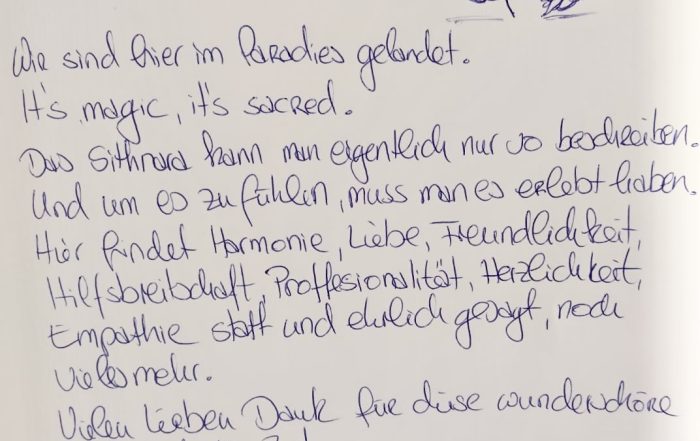 Wir sind hier im Paradies gelandet.
It's magic, it's sacred.
Das Sithnara kann man eigentlich nur so beschreiben.
Und um es zu fühlen, muss man es erlebt haben.
Hier findet Harmonie, Liebe, Freundlichkeit,
Hilfsbreitschaft, Proffesionalität, Herzlichkeit,
Empathie statt und ehrlich gesagt, noch
vieles mehr.
Vielen lieben Dank für diese wunderschöne